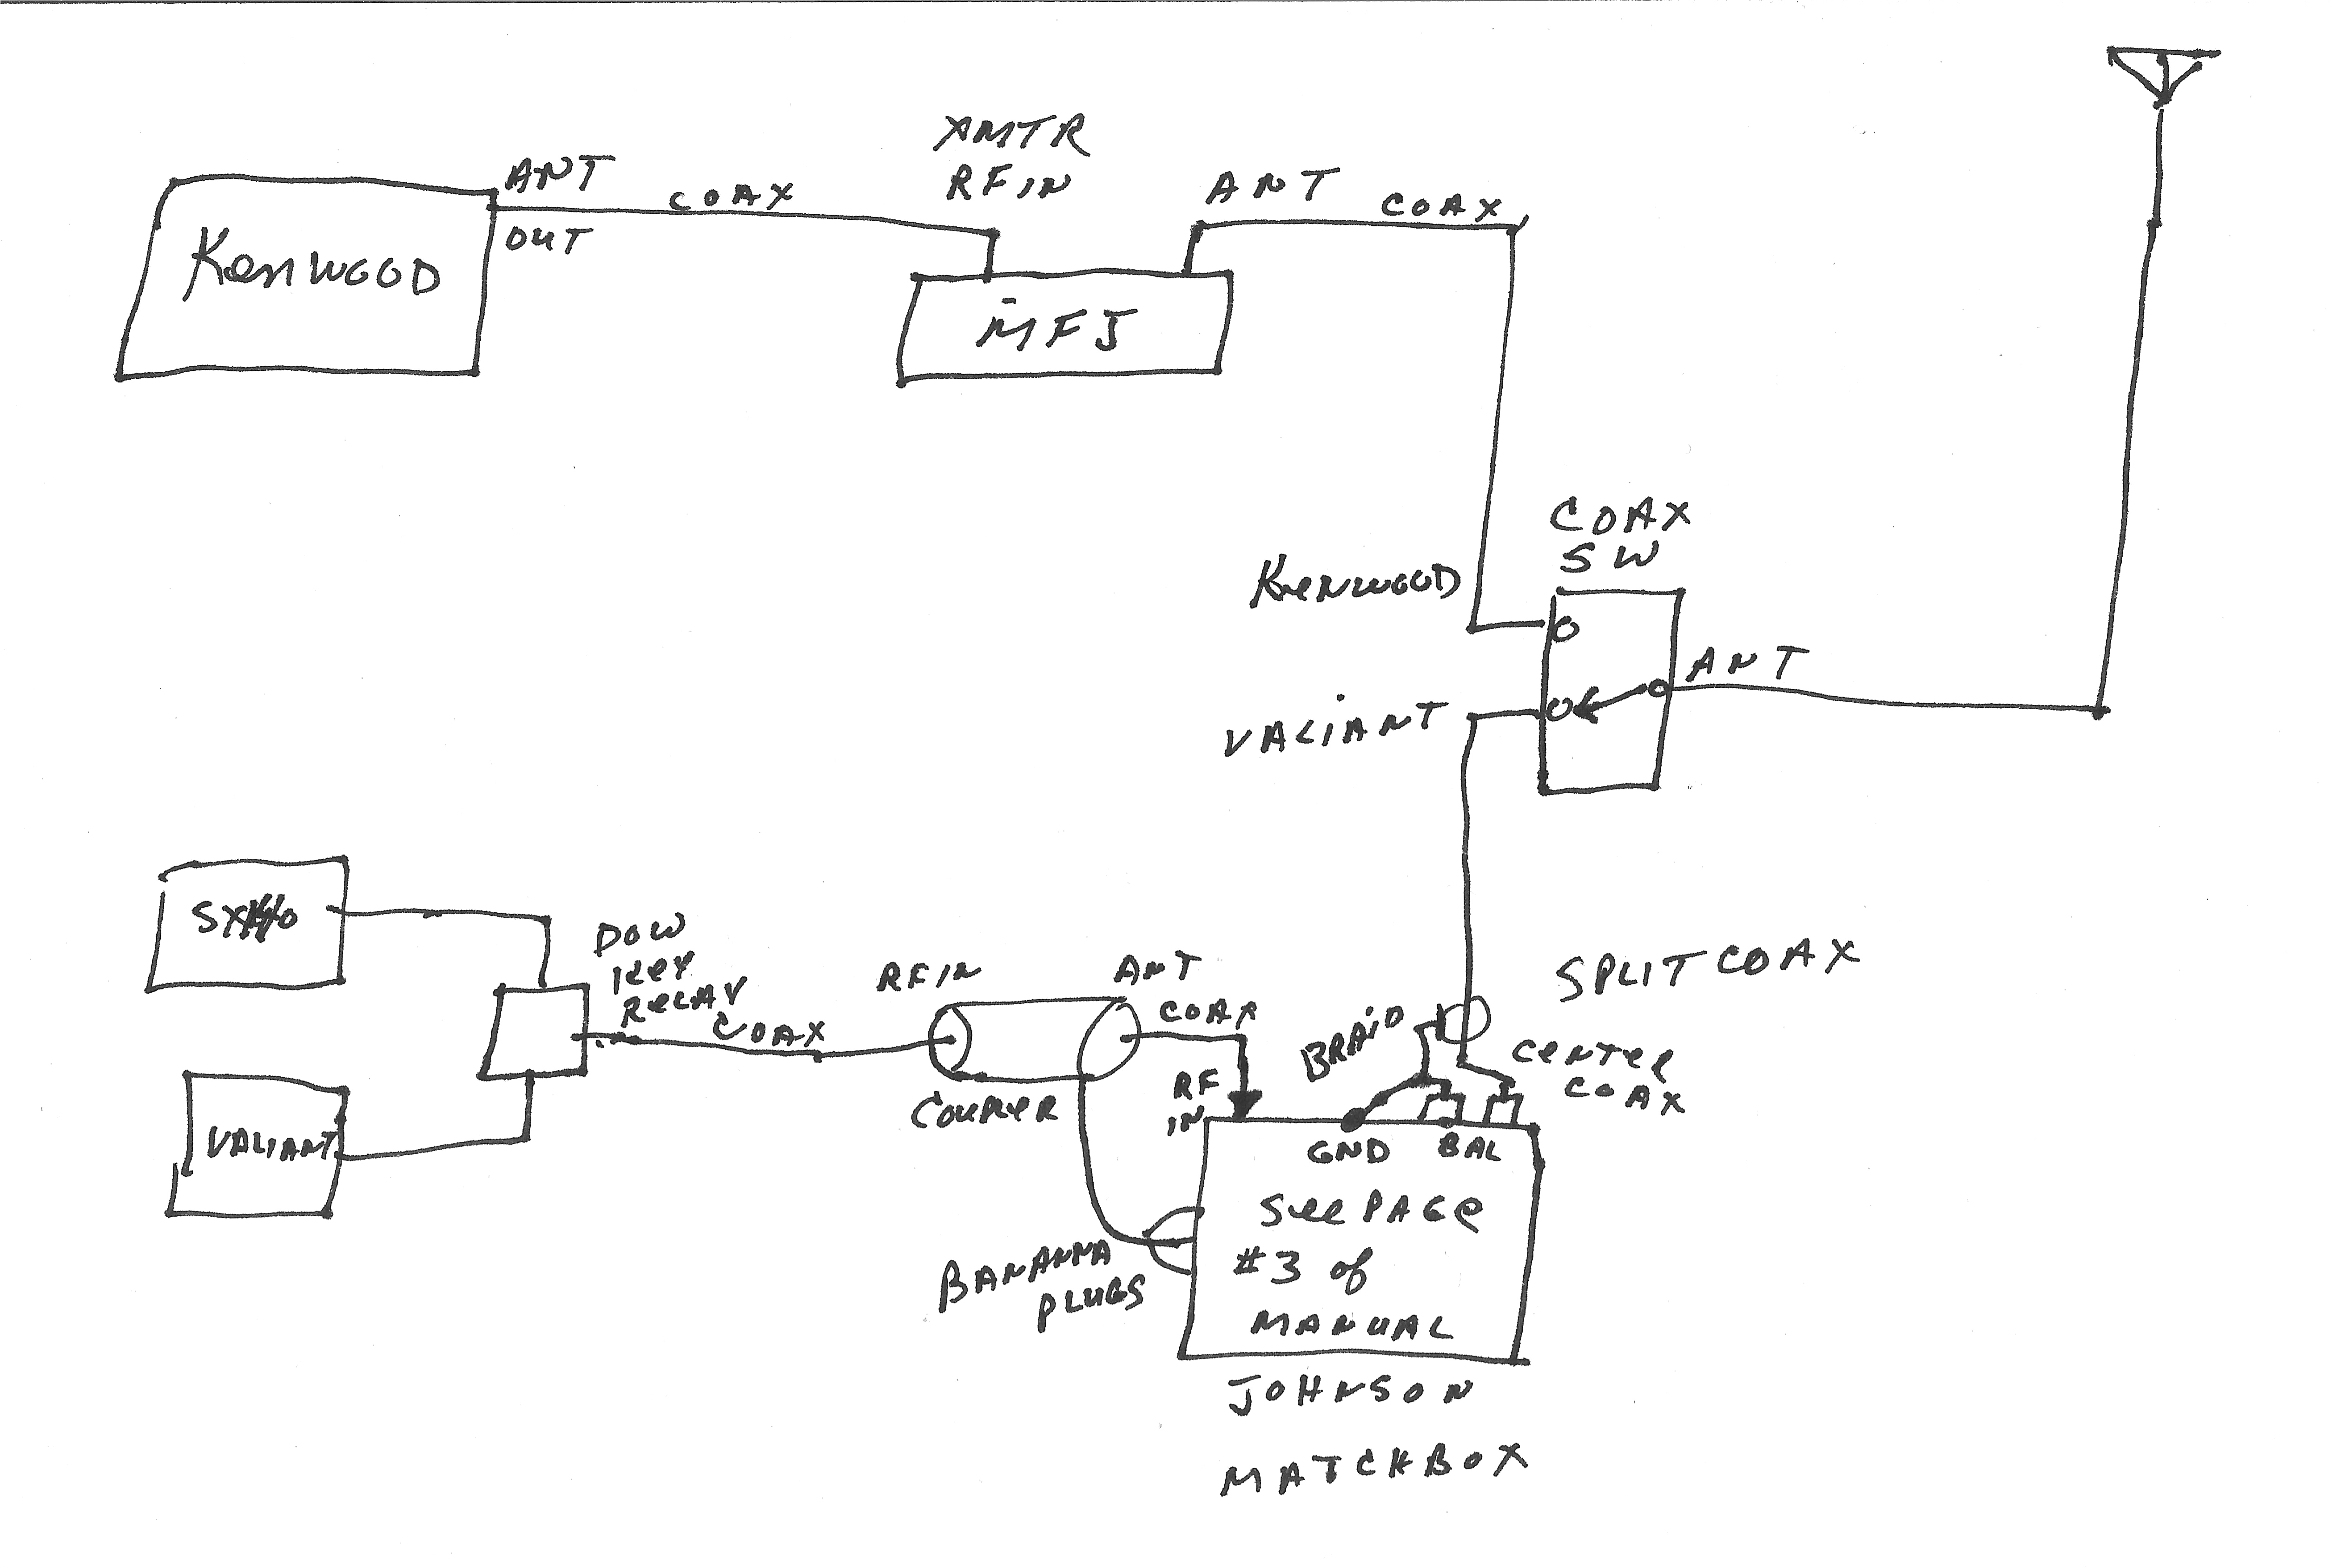 XMTR
RF IN
ANT
OUT
COAX
ANT
COAX
Kenwood
MFJ
COAX
SW
Kenwood
ANT
VALIANT
DOW
Key
Relay
COAX
RF IN
ANT
COAX
SPLIT COAX
BRAID
CENTER
COAX
COUPLER
RF
IN
VALIANT
GND
BAL
See PAGE
#3 of
MANUAL
BANANNA
PLUGS
JOHNSON
MATCHBOX